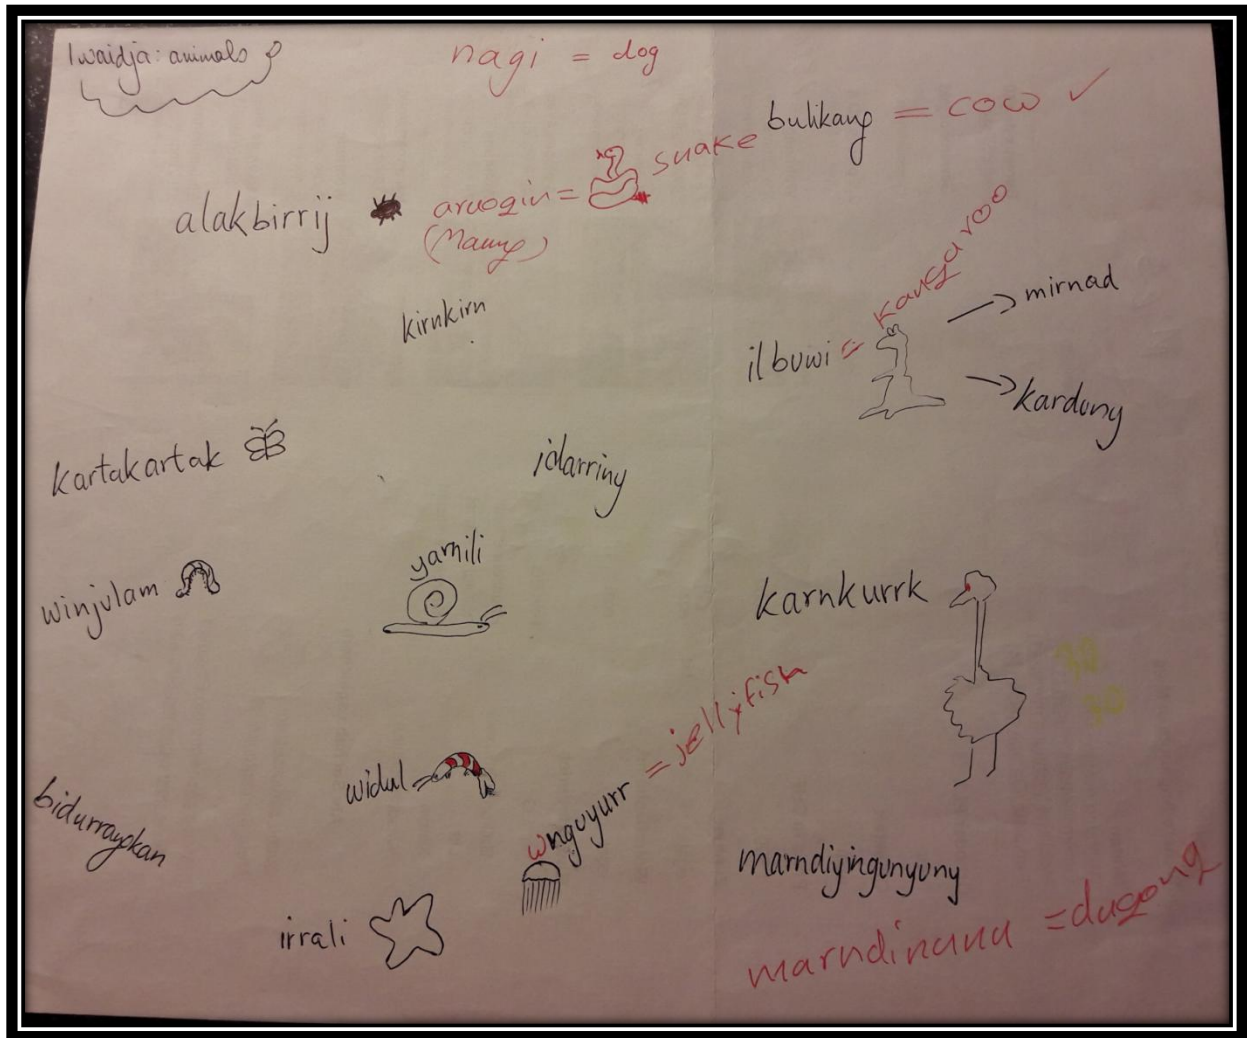 Iwaidja: animals
nagi = dog
bulikang = cow ✓
alakbirrij
aruogin = snake
(Mawng)
kirnkirn
ilbuwi = kangaroo
mirnad
karduny
kartakartak
idarriny
winjulam
yarnili
karnkurrk
widul
wnguyurr = jellyfish
bidurrayokan
marndiyingunyuny
irrali
marndinunu = dugong